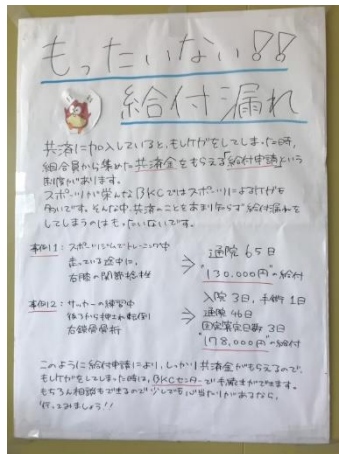 もったいない!!
給付漏れ
共済に加入していると、もしケガをしてしまった時、
組合員から集めた共済金をもらえる「給付申請」という
制度があります。
スポーツが栄んなBKCではスポーツによるケガも
多いです。そんな中、共済のことをあまり知らず給付漏れを
してしまうのはもったいないです。
事例1:スポーツジムでトレーニング中
走っている途中に、
右膝の関節捻挫
→
通院 65日
"130,000円"の給付
事例2:サッカーの練習中
後ろから押され転倒
右鎖骨骨折
→
入院 3日, 手術 1日
通院 46日
固定算定日数 3日
"178,000円"の給付
このように給付申請により、しっかり共済金がもらえるので、
もしケガをしてしまった時には、BKCセンターで手続きができます。
もちろん相談もできるので少しでも心当たりがあるなら、
行ってみましょう!!